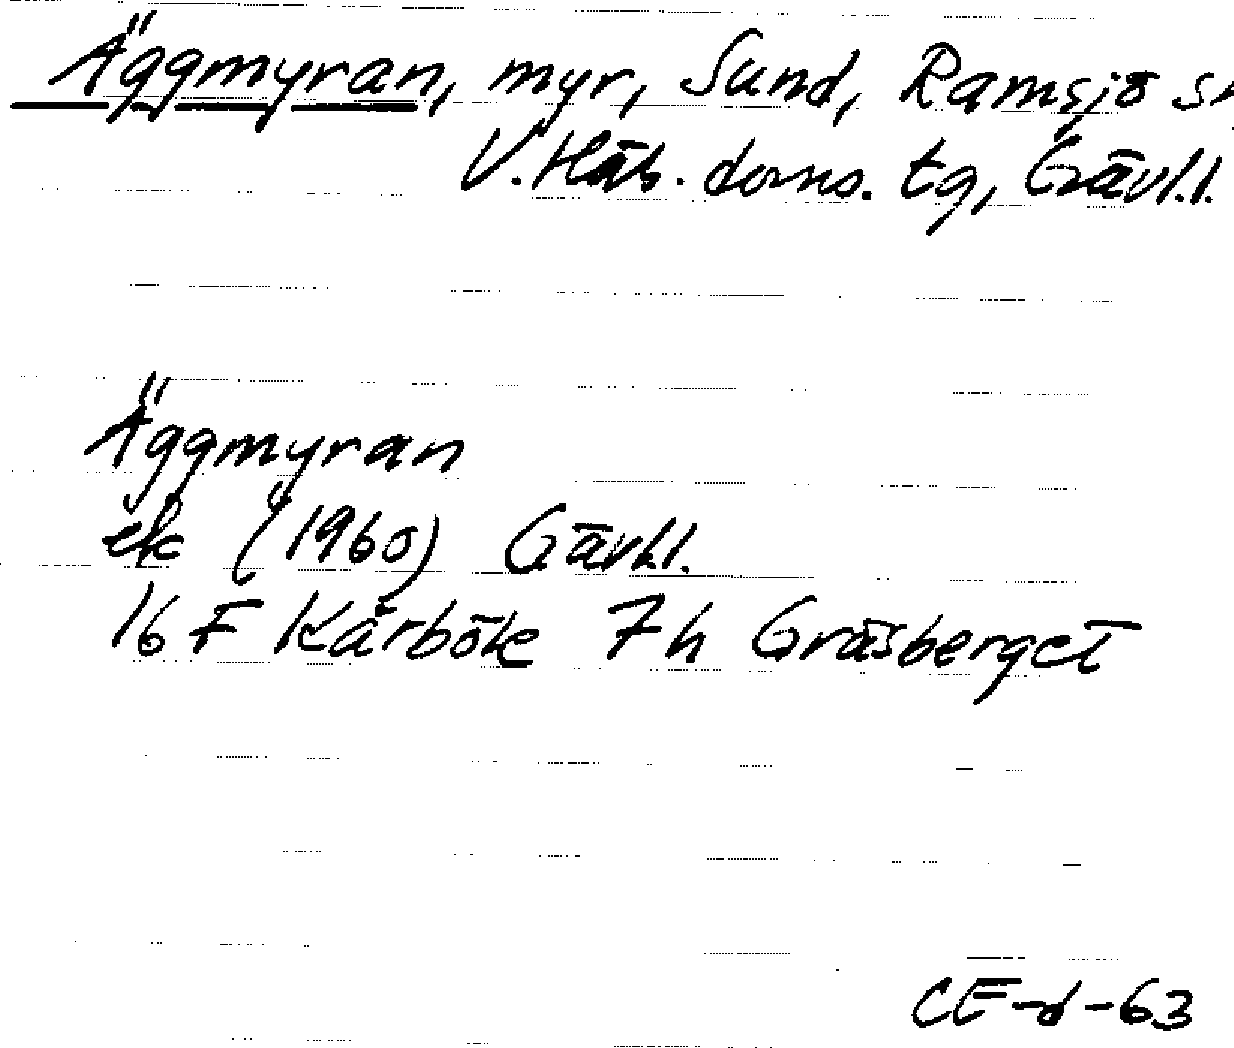 Äggmyran, myr, Sund, Ramsjö sn
V. Häls. doms. tg, Gävl.l.
Äggmyran
ek (1960) Gävl.l.
16 F Kårböle 7h Gräsberget
CE-d-63